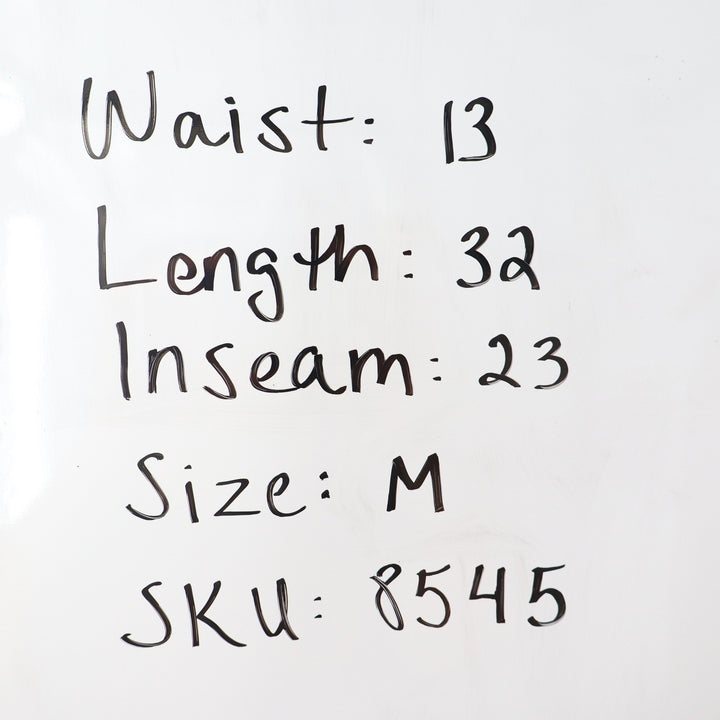 Waist: 13
Length: 32
Inseam: 23
Size: M
SKU: 8545